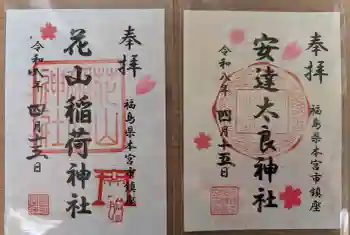 奉拝
福島県本宮市鎮座
花山稲荷神社
令和八年 四月十五日
奉拝
福島県本宮市鎮座
安達太良神社
令和八年 四月十五日